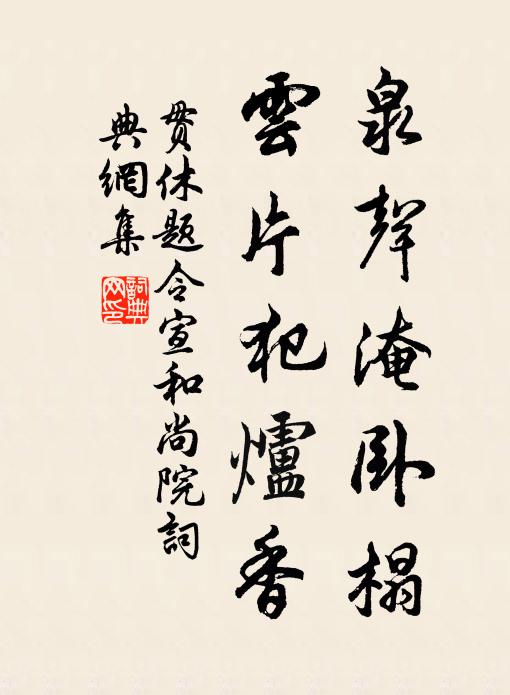 泉聲淹卧榻
雲片犯爐香
贯休题令宣和尚院詞
典網集
詞典
网印